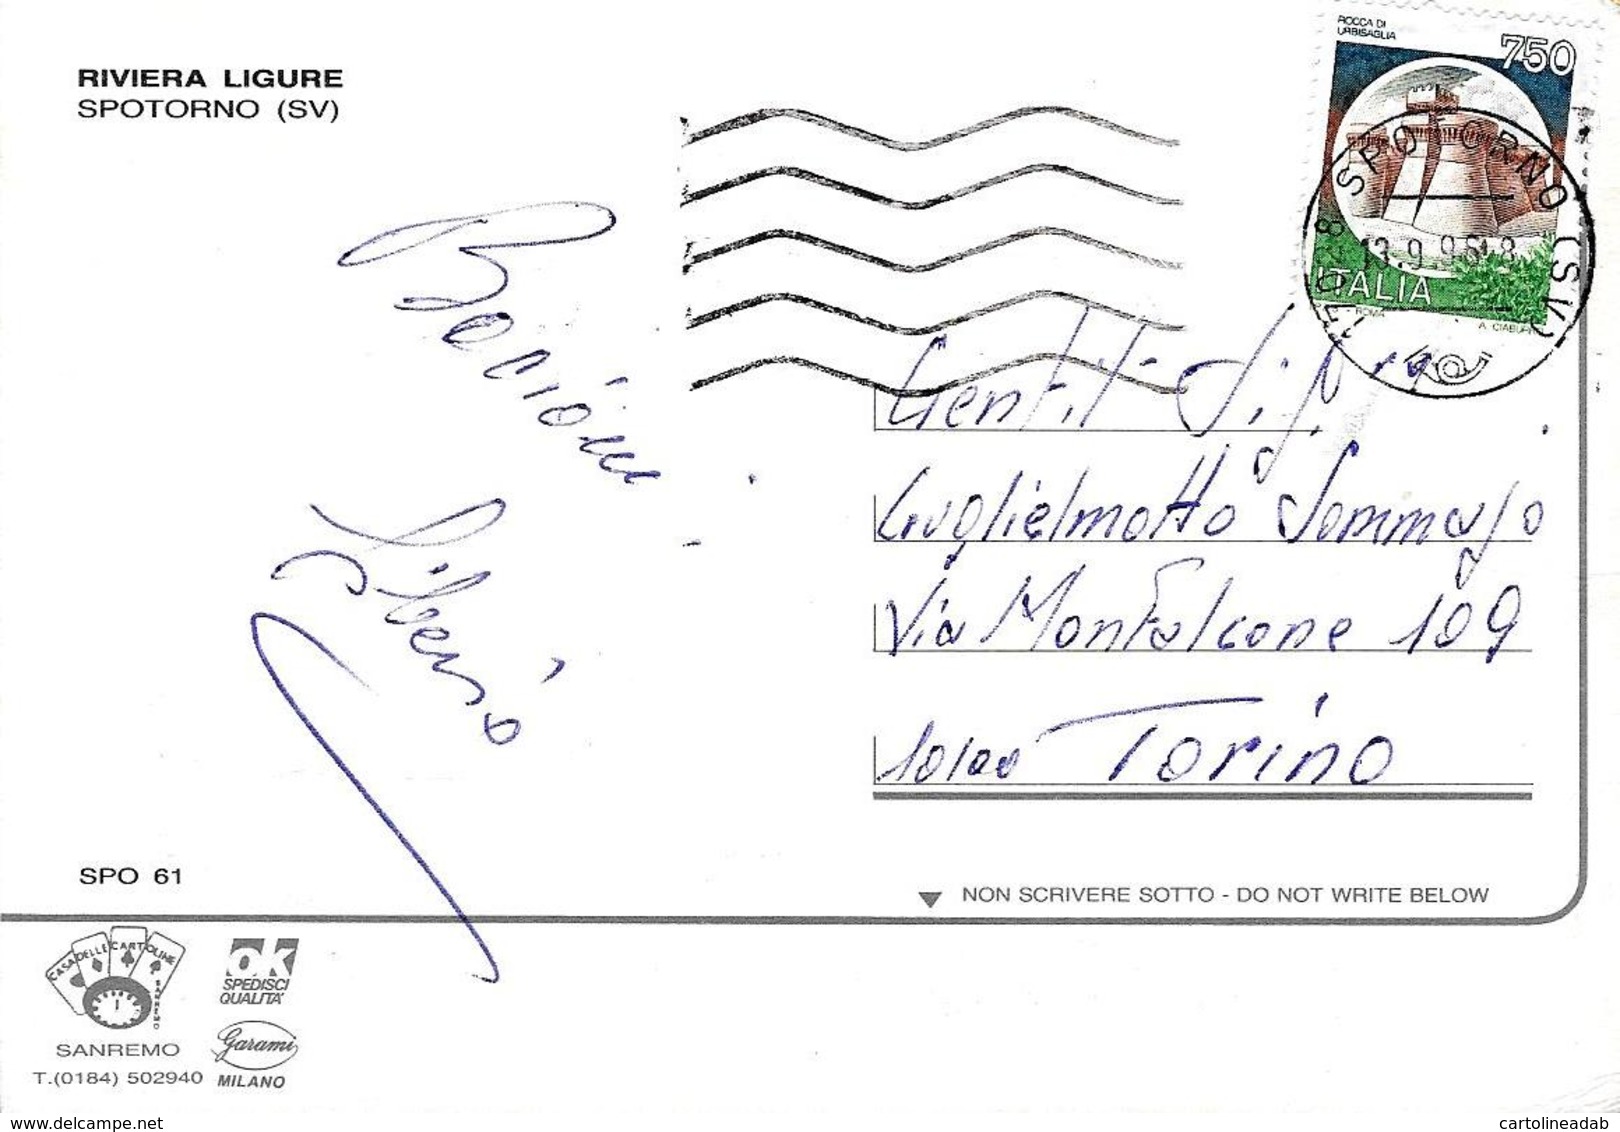 RIVIERA LIGURE
SPOTORNO (SV)
ROCCA DI
URBISAGLIA
750
ITALIA
ROMA
17028 SPOTORNO (SV)
13.9.96
Bacioni
Liberio
Gent. Sig.ra
Guglielmotto Sommajo
Via Monfalcone 109
10100 Torino
SPO 61
NON SCRIVERE SOTTO - DO NOT WRITE BELOW
CASA DELLE CARTOLINE
SANREMO
SANREMO
T.(0184) 502940
ok
SPEDISCI
QUALITA'
Garami
MILANO
cartolineadab